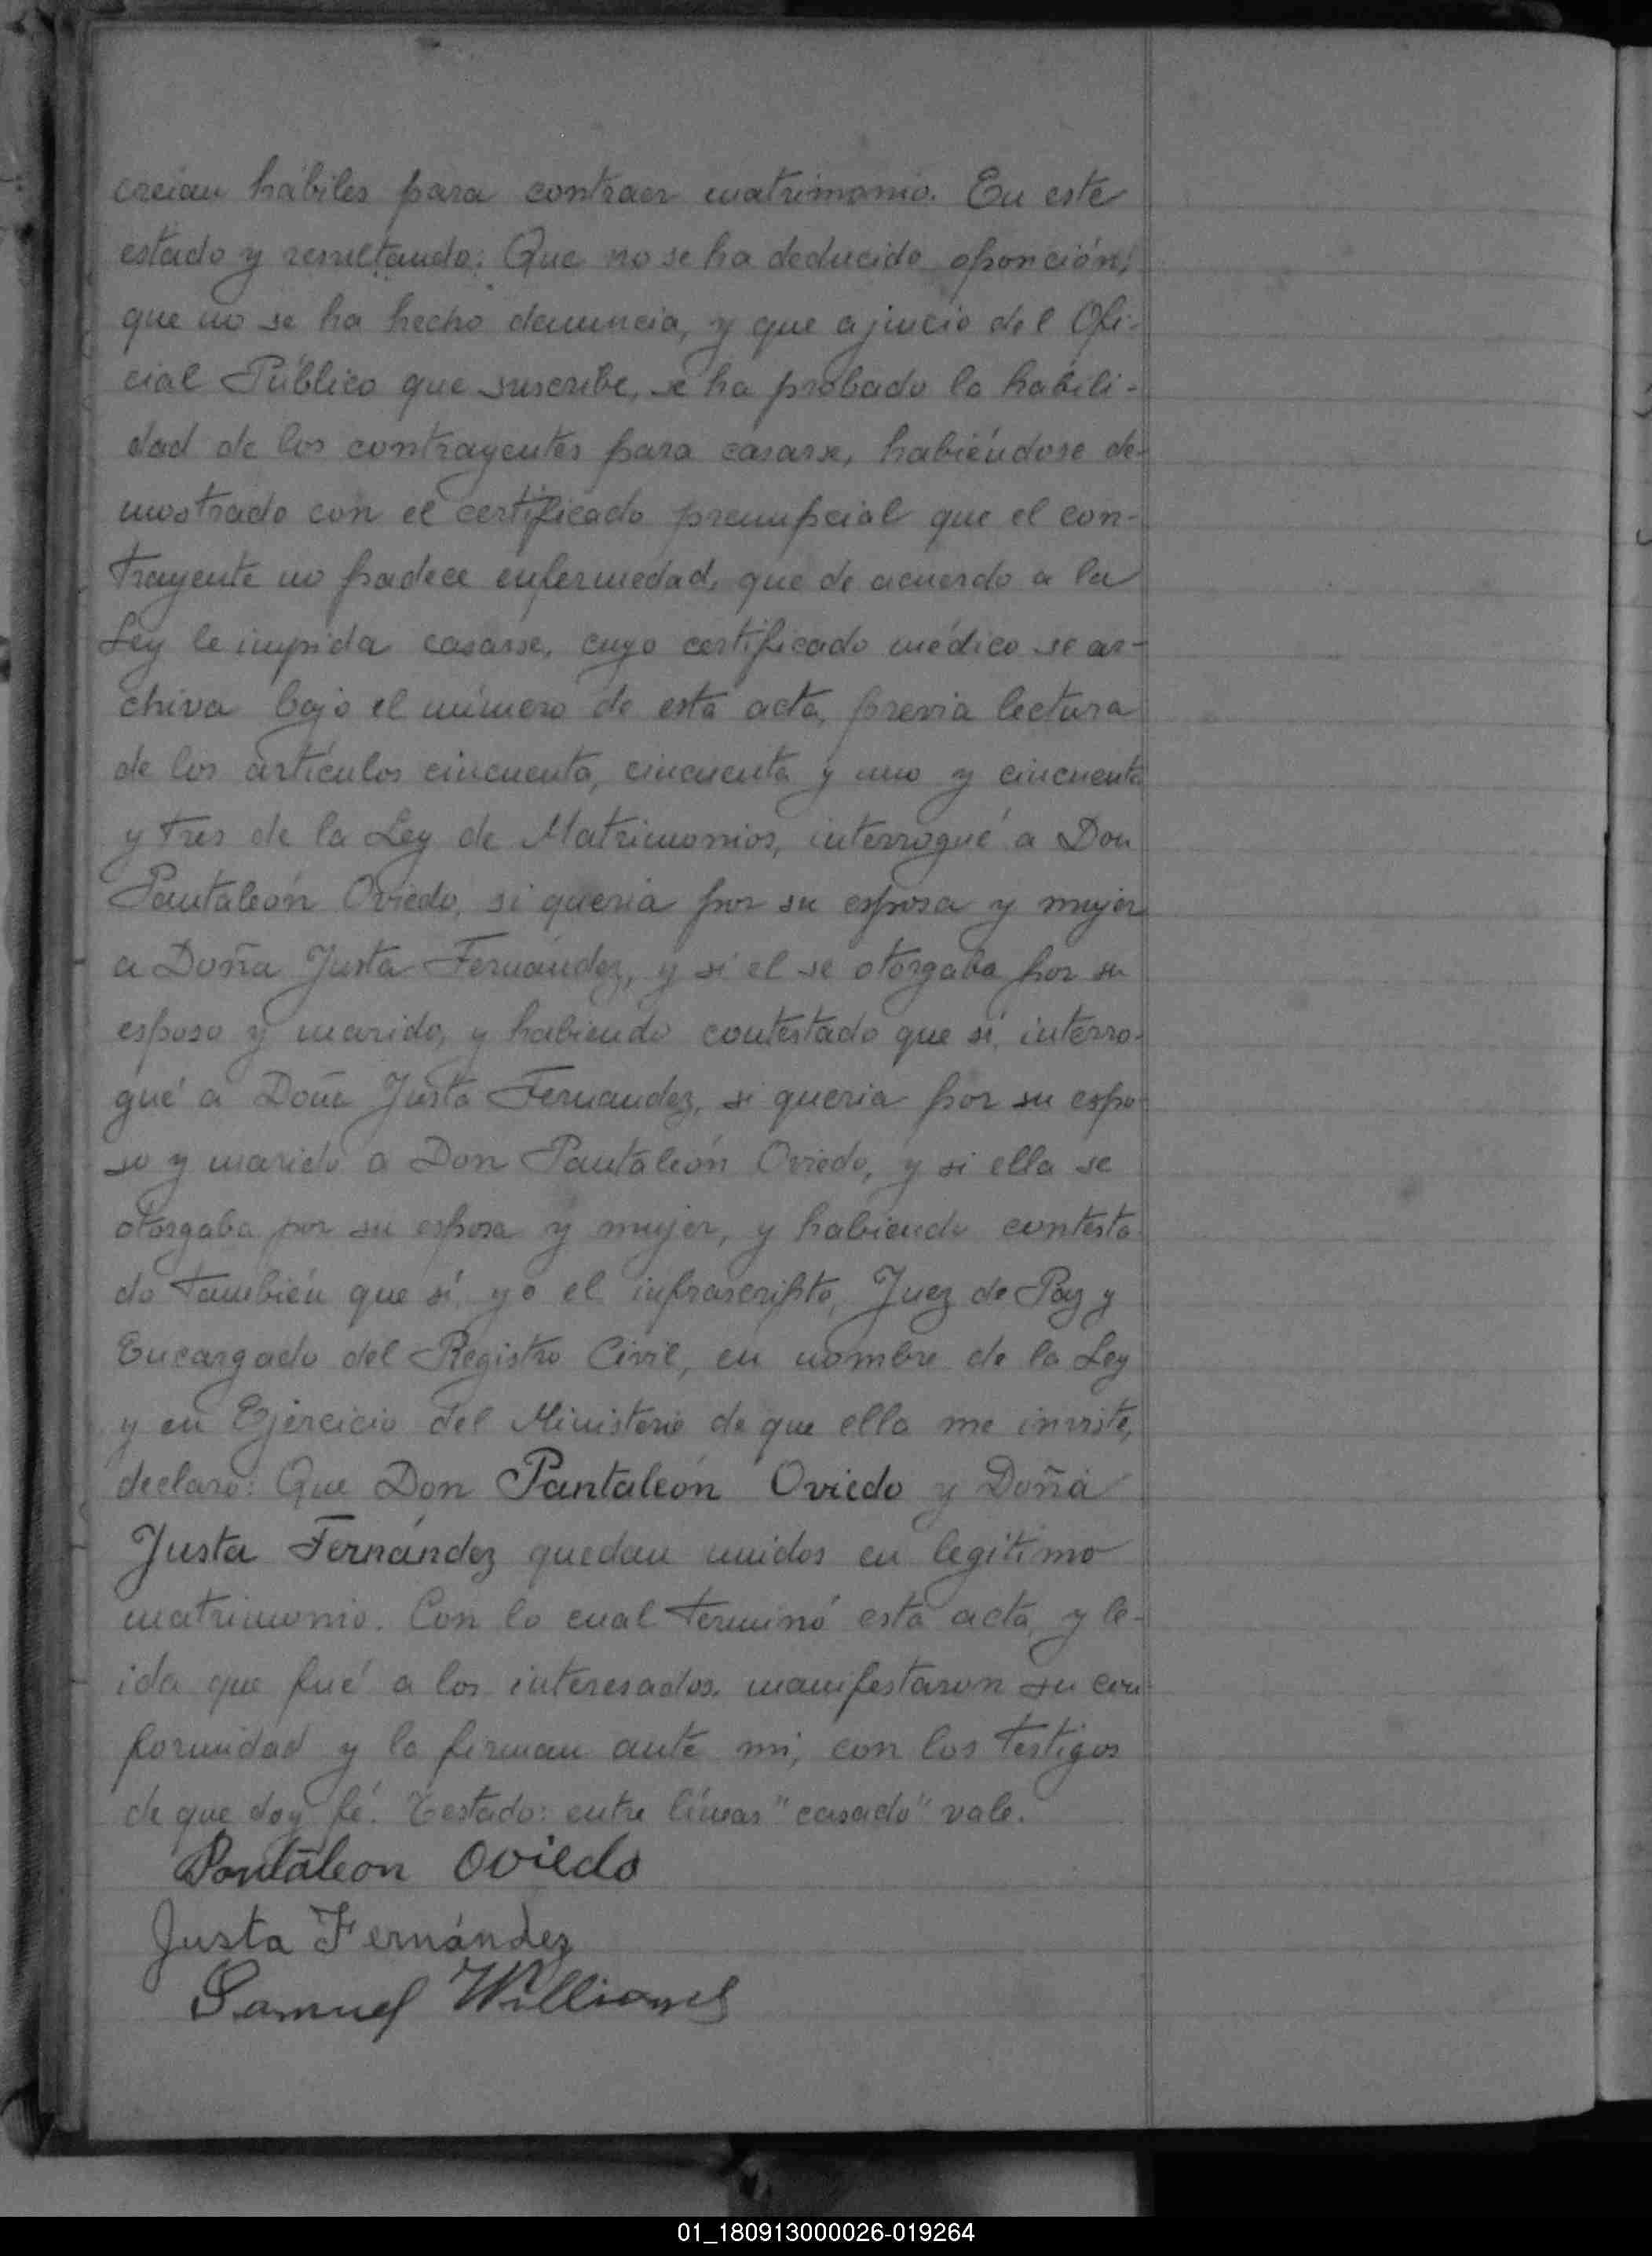 creian hábiles para contraer matrimonio. En este
estado y resultando: Que no se ha deducido oposición;
que no se ha hecho denuncia, y que a juicio del Ofi-
cial Público que suscribe, se ha probado la habili-
dad de los contrayentes para casarse, habiéndose de-
mostrado con el certificado prenupcial que el con-
trayente no padece enfermedad, que de acuerdo a la
Ley le impida casarse, cuyo certificado médico se ar-
chiva bajo el número de esta acta, previa lectura
de los artículos cincuenta, cincuenta y uno y cincuenta
y tres de la Ley de Matrimonios, interrogué a Don
Pantaleón Oviedo, si queria por su esposa y mujer
a Doña Justa Fernández, y si el se otorgaba por su
esposo y marido, y habiendo contestado que sí, interro-
gué a Doña Justa Fernandez, si queria por su espo-
so y marido a Don Pantaleón Oviedo, y si ella se
otorgaba por su esposa y mujer, y habiendo contesta
do también que sí yo el infrascripto, Juez de Paz y
Encargado del Registro Civil, en nombre de la Ley
y en Ejercicio del Ministerio de que ella me inviste,
declaro: Que Don Pantaleón Oviedo y Doña
Justa Fernández quedan unidos en legítimo
matrimonio. Con lo cual terminó esta acta y le-
ida que fué a los interesados, manifestaron su con
formidad y la firman ante mi, con los testigos
de que doy fé. Testado: entre líneas "casado" vale.
Pantaleon Oviedo
Justa Fernández
Samuel Williams
01_180913000026-019264